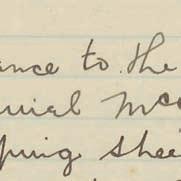 ance to the
niel Mc
ping shee